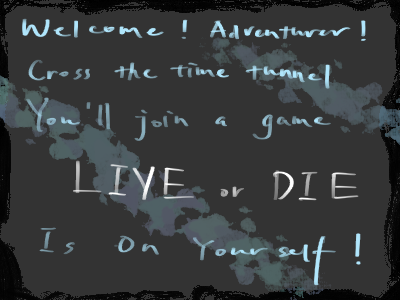 Welcome ! Adventurer !
Cross the time tunnel
You'll join a game
LIVE or DIE
Is On Yourself !